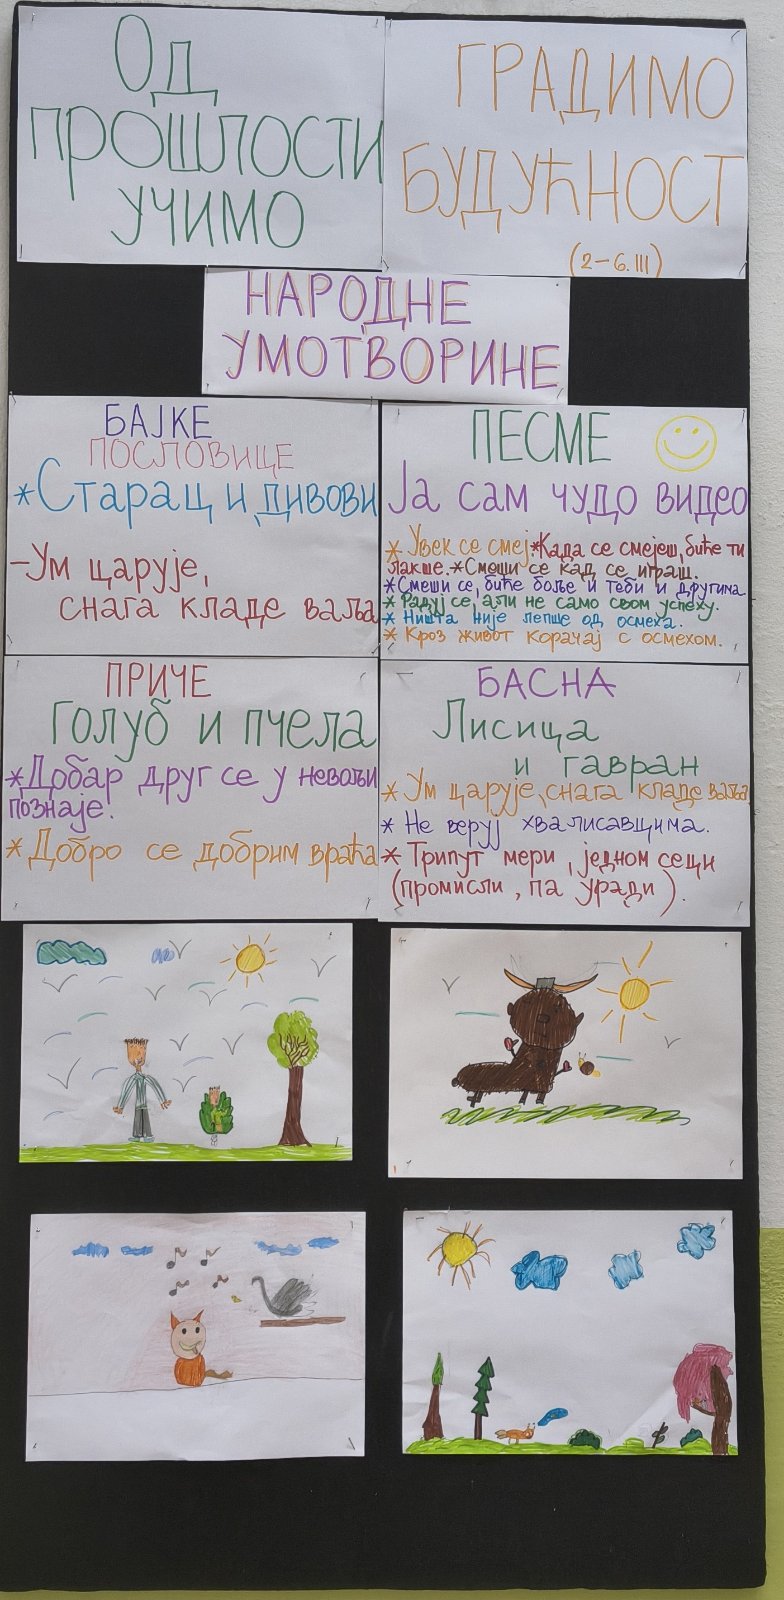 Од
прошлости
учимо
ГРАДИМО
БУДУЋНОСТ
(2-6. III)
НАРОДНЕ
УМОТВОРИНЕ
БАЈКЕ
ПОСЛОВИЦЕ
*Старац и дивови
-Ум царује,
снага кладе ваља
ПЕСМЕ
Ја сам чудо видео
* Увек се смеј.*Када се смејеш, биће ти
лакше.*Смеши се кад се играш.
*Смеши се, биће боље и теби и другима.
* Радуј се, али не само свом успеху.
* Ништа није лепше од осмеха.
* Кроз живот корачај с осмехом.
ПРИЧЕ
Голуб и пчела
*Добар друг се у невољи
познаје.
*Добро се добрим враћа
БАСНА
Лисица
и гавран
* Ум царује, снага кладе ваља
* Не веруј хвалисавцима.
* Трипут мери, једном сеци
(промисли, па уради).